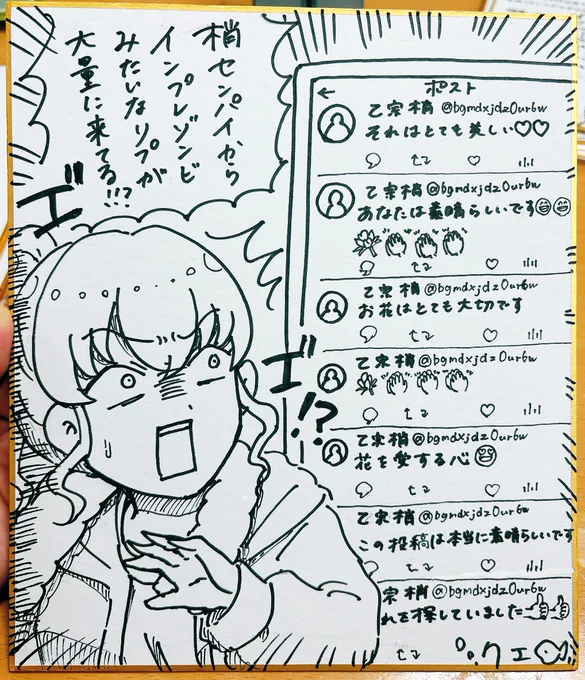 梢センパイから
インプレゾンビ
みたいなリプが
大量に来てる!!?
ゴゴ
!?
ポスト
←
乙宗梢 @bgmdxjdz0ur6w
それはとても美しい♡♡
乙宗梢 @bgmdxjdz0ur6w
あなたは素晴らしいです😄😄
💐👏👏👏
乙宗梢 @bgmdxjdz0ur6w
お花はとても大切です
乙宗梢 @bgmdxjdz0ur6w
💐👏👏👏
乙宗梢 @bgmdxjdz0ur6w
花を愛する心😄
乙宗梢 @bgmdxjdz0ur6w
この投稿は本当に素晴らしいです
宗梢 @bgmdxjdz0ur6w
れを探していました👍👍
クエ